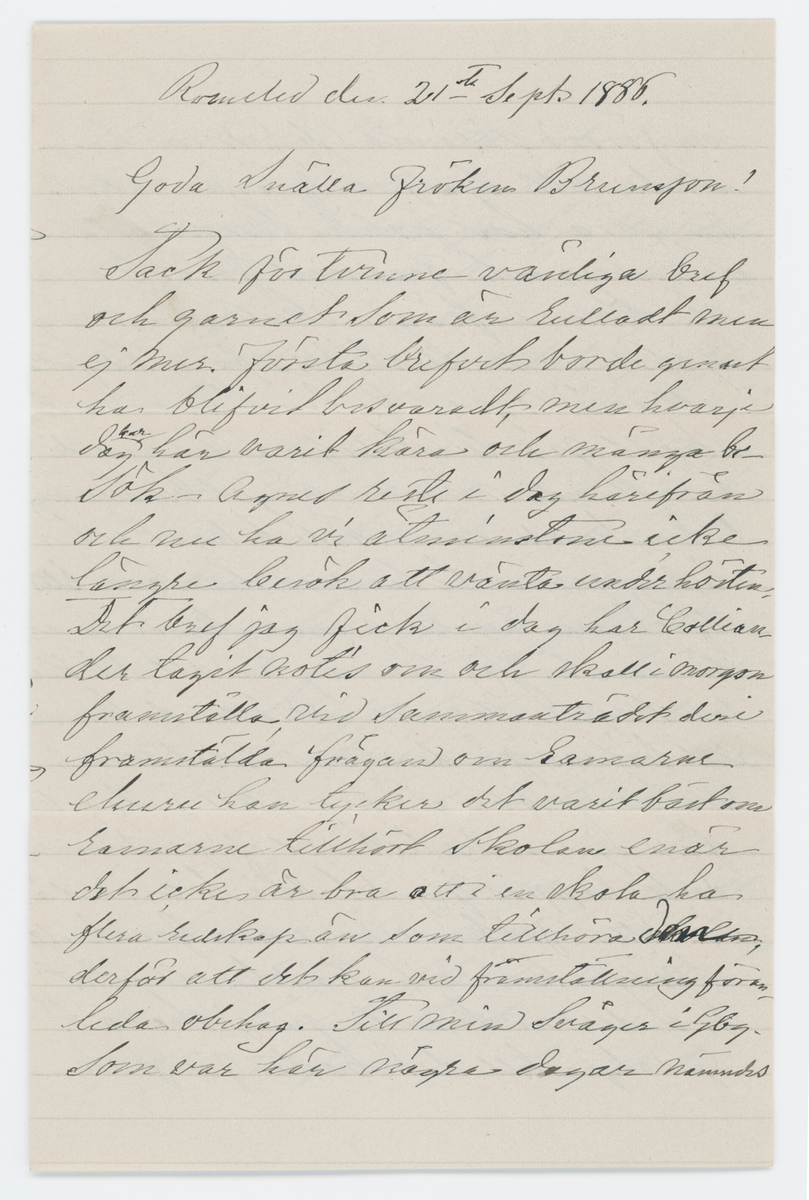 Romeled den 21th Sept 1886.
Goda Snälla Fröken Brunsson!
Tack för tvänne vänliga bref
och garnet som är kulladt men
ej mer. Första brefvet borde genast
ha blifvit besvaradt, men hvarje
dag har här varit kära och många be-
sök – Agnes reste i dag härifrån
och nu ha vi åtminstone icke
längre besök att vänta under hösten.
Det bref jag fick i dag har Collian-
der tagit notis om och skall i morgon
framställa vid sammanträdet deri
framstälda frågan om ramarne
ehuru han tycker det varit bäst om
ramarne tillhört skolan enär
det icke är bra att i en skola ha
flera redskap än som tillhöra den,
derför att det kan vid framställning föran-
leda obehag. Till min Svåger i Gbg.
som var här några dagar nämndes